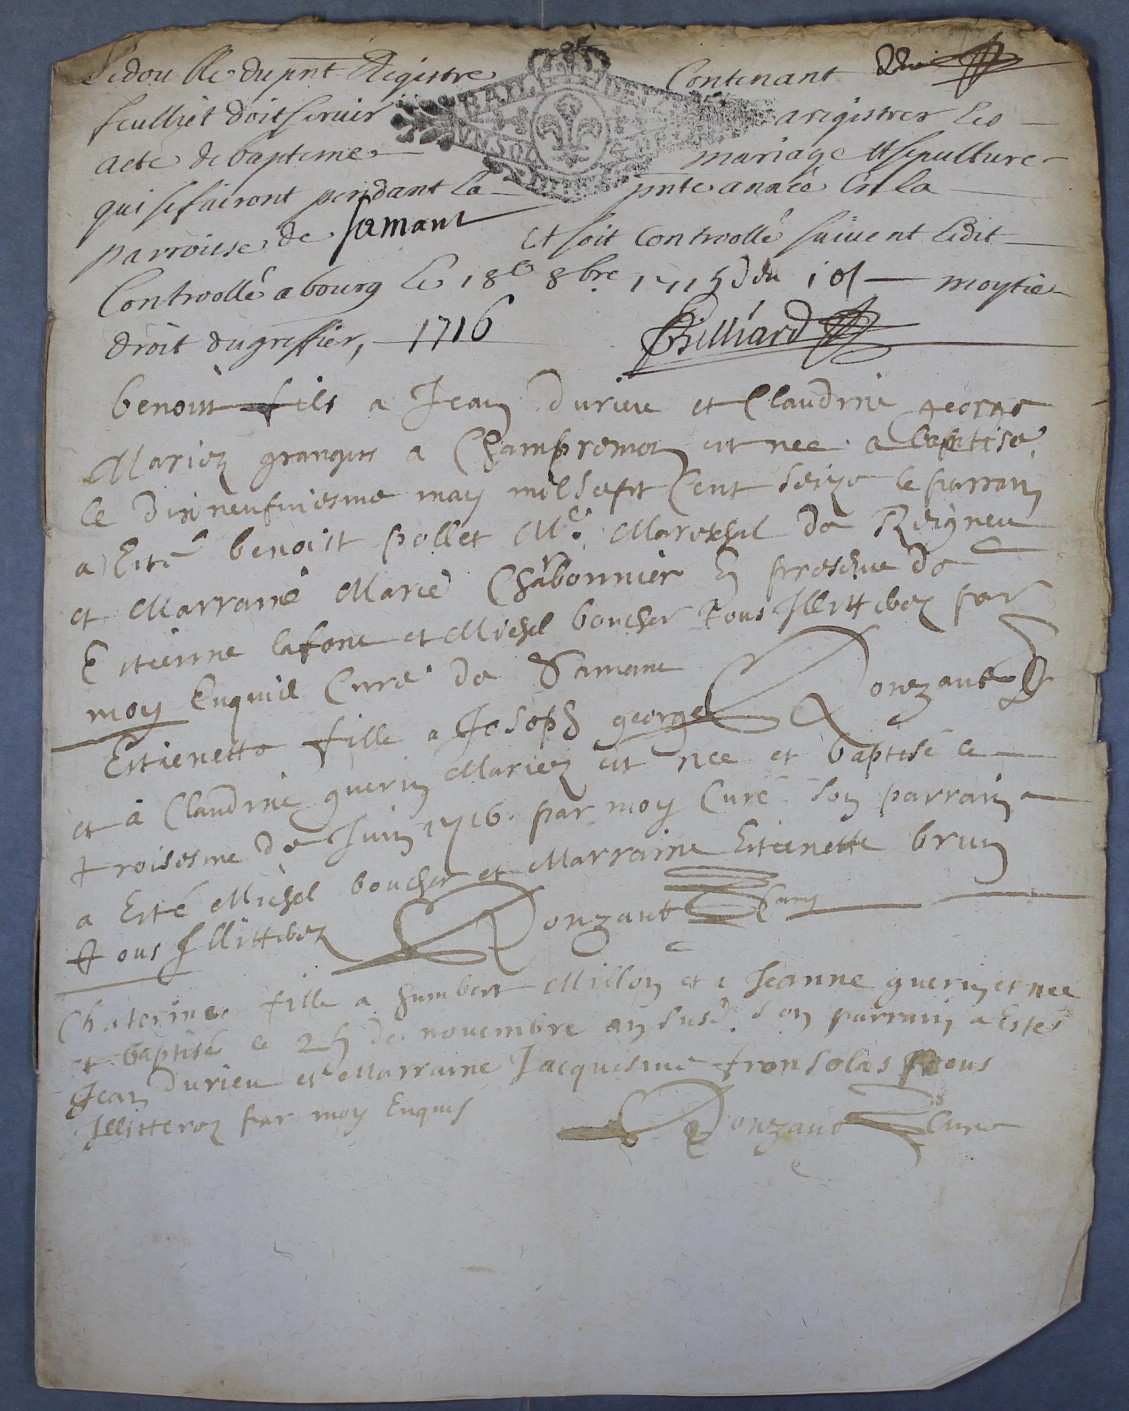 Le double du pnt Registre Contenant
feulliet doit servir a registrer les
acte de bapteme mariage et sepulture
qui se fairont pendant la pnte année en la
parroisse de Samant Et soit Controollé suivent Ledit
Controollé a bourg Le 18e 8bre 1715 du 10s moytie
droit du greffier, 1716 Billiard
benoist fils a Jean durieu et Claudine george
Mariez grangers a Champremon est nee a baptise
le dixneufviesme may mil sept Cent seize le parrain
a Esté benoist pollet Me Mareschal de Reigneu
et Marraine Marie Chabonnier En presence de
Estienne lafone et Michel boucher tous Illitterez par
moy Enquis Curé de Samane Donzaut
Estienette fille a Joseph george
et a Claudine guerin Mariez est nee et baptisé le
troisesme de Juin 1716 par moy Curé son parrain
a Esté Michel boucher et Marraine Estienette brun
tous Illitterez Donzaut Curé
Chaterine fille a humbert Millon et a Jeanne guerin est nee
et baptisé le 25 de novembre an susd. son parrain a Estés
Jean durieu et Marraine Jacquesme fronsolas tous
Illitteroz par moy Enquis Donzaut Cure